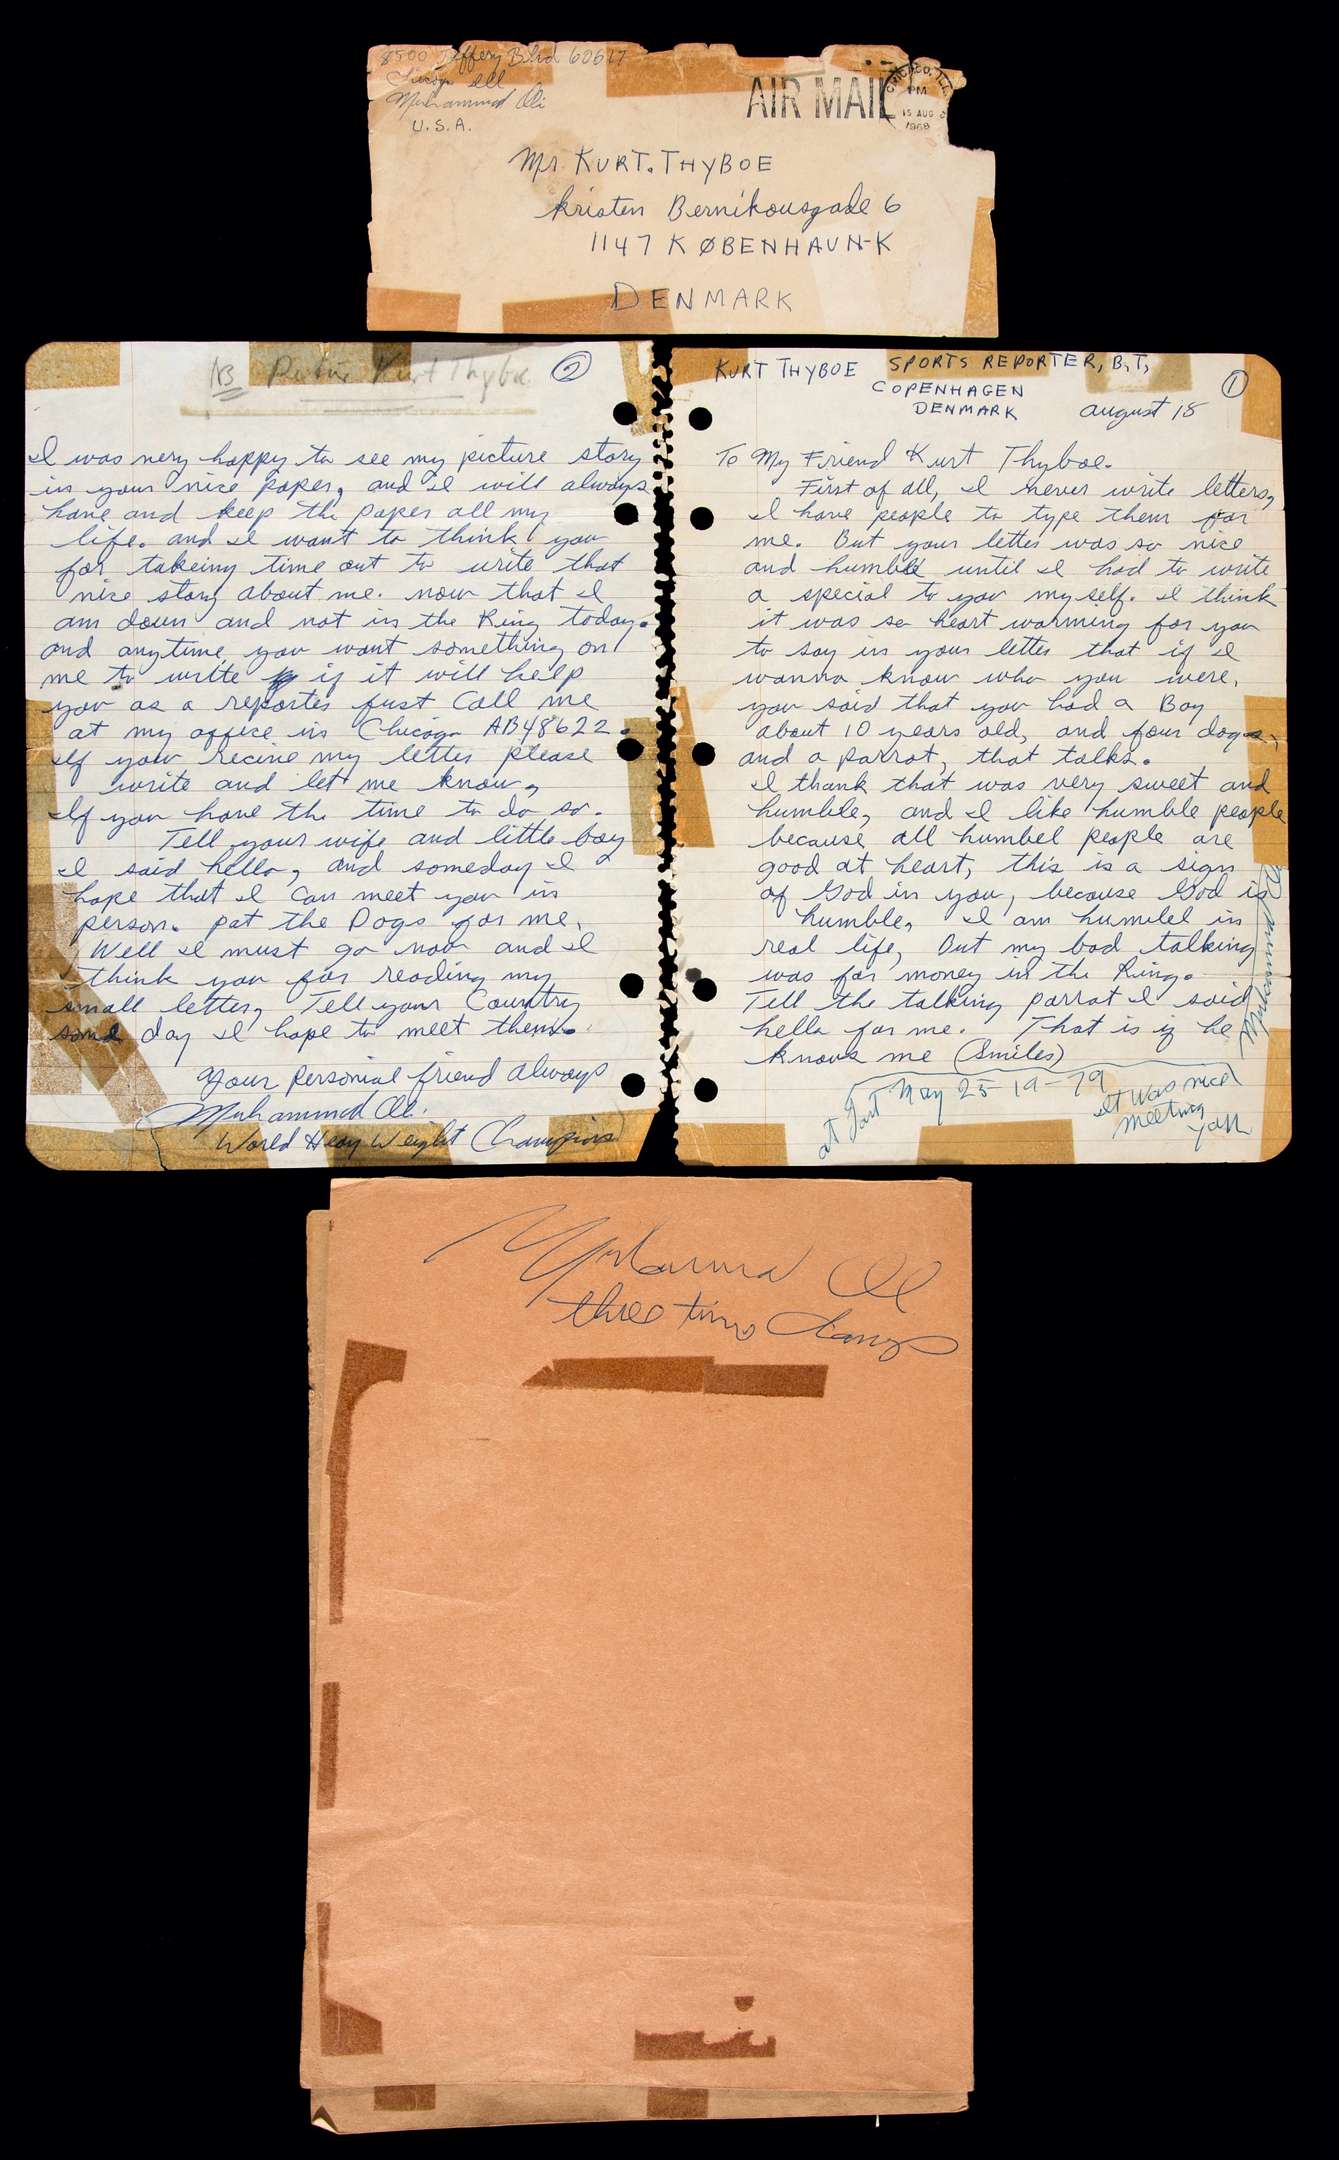 8500 Jeffery Blvd 60617
Chicago Ill
Muhammad Ali
U.S.A.
AIR MAIL
CHICAGO, ILL.
PM
15 AUG
1968
Mr. KURT. THYBOE
Kristen Bernikousgade 6
1147 KØBENHAUN-K
DENMARK
KURT THYBOE SPORTS REPORTER, B.T,
COPENHAGEN
DENMARK
august 15
1
To My Friend Kurt Thyboe.
First of all, I never write letters,
I have people to type them for
me. But your letter was so nice
and humble until I had to write
a special to you myself. I think
it was so heart warming for you
to say in your letter that if I
wanna know who you were,
you said that you had a Boy
about 10 years old, and four dogs,
and a parrot, that talks.
I thank that was very sweet and
humble, and I like humble people
because all humbel people are
good at heart, this is a sign
of God in you, because God is
humble, I am humbel in
real life, But my bad talking
was for money in the Ring.
Tell the talking parrot I said
hello for me. That is if he
knows me (Smiles)
Muhammad Ali
May 25-19-79
It was nice
meeting
you
NB Kurt Thyboe
2
I was very happy to see my picture story
in your nice paper, and I will always
have and keep the paper all my
life. and I want to think you
for takeing time out to write that
nice story about me. now that I
am down and not in the Ring today.
and anytime you want something on
me to write if it will help
you as a reporter just Call me
at my office in Chicago AB48622.
If your recive my letter please
write and let me know,
If you have the time to do so.
Tell your wife and little boy
I said hello, and someday I
hope that I can meet you in
person. pat the Dogs for me.
Well I must go now and I
think you for reading my
small letter, Tell your Country
some day I hope to meet them.
your personial friend always
Muhammad Ali.
World Heavy Weight Champion
Muhammad Ali
three time Champ